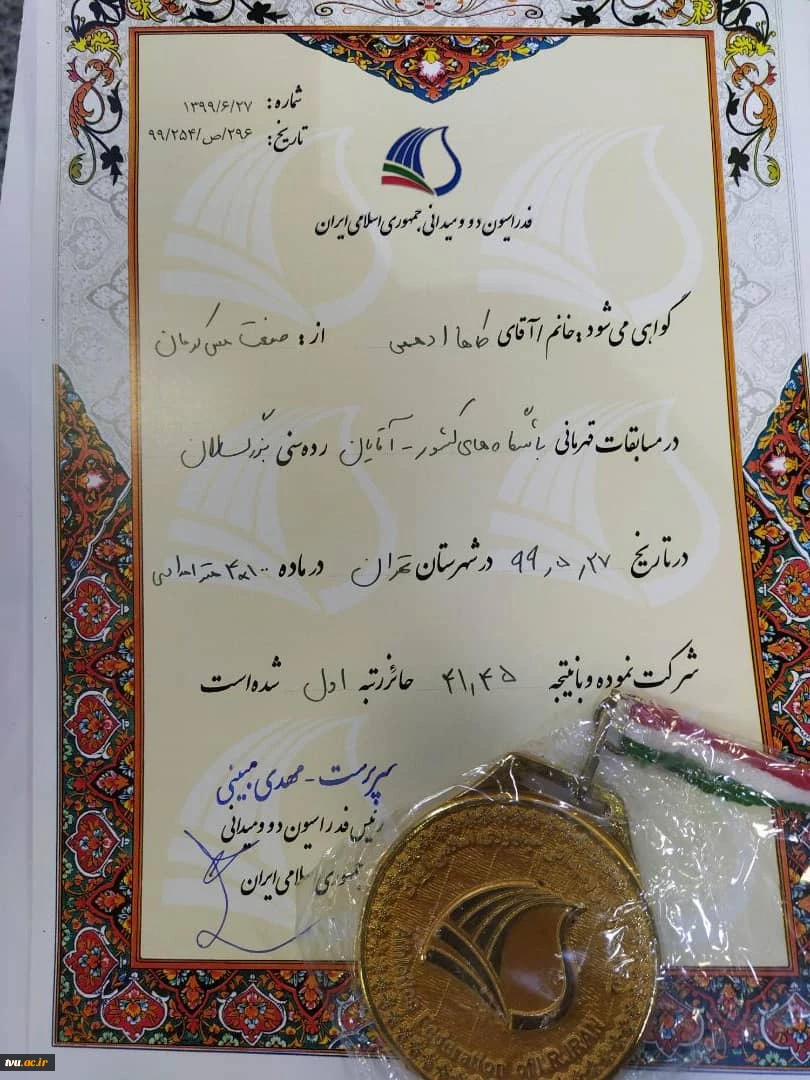 شماره: ۱۳۹۹/۶/۲۷
تاریخ: ۲۹۶/ص/۹۹/۲۵۴
فدراسیون دو و میدانی جمهوری اسلامی ایران
گواهی می شود: خانم / آقای طاها ادهمی از: صنعت مس کرمان
در مسابقات قهرمانی باشگاه های کشور - آقایان رده سنی بزرگسالان
در تاریخ ۹۹,۵,۲۷ در شهرستان تهران در ماده ۴×۱۰۰ متر امدادی
شرکت نموده و با نتیجه ۴۱,۴۵ حائز رتبه اول شده است
سرپرست - مهدی مبینی
رئیس فدراسیون دو و میدانی
جمهوری اسلامی ایران
Federation of I.R.IRAN
tvu.ac.ir